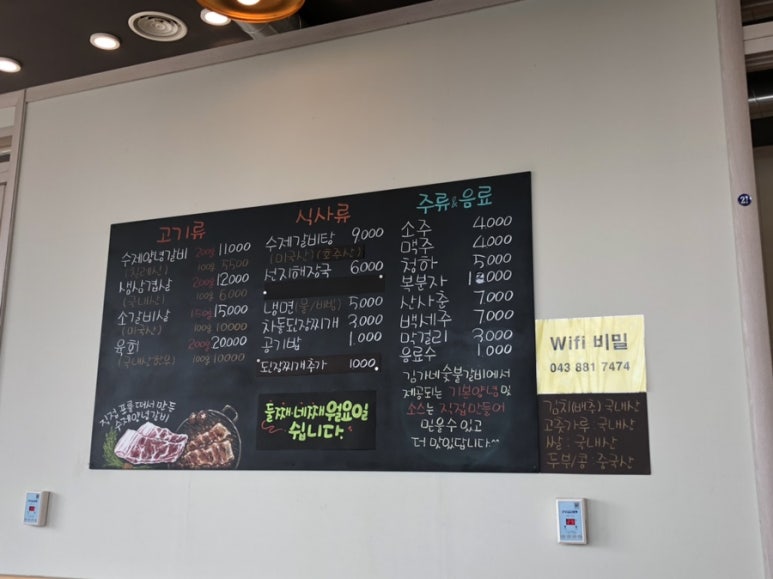 고기류
수제양념갈비 200g 11000
(칠레산) 100g 5500
생삼겹살 200g 12000
(국내산) 100g 6000
소갈비살 150g 15000
(미국산) 100g 10000
육회 200g 20000
(국내산한우) 100g 10000
직접 포를 떠서 만든
수제양념갈비
식사류
수제갈비탕 9000
(미국산)(호주산)
선지해장국 6000
냉면(물/비빔) 5000
차돌된장찌개 3,000
공기밥 1,000
된장찌개추가 1000
둘째·네째 월요일
쉽니다.
주류&음료
소주 4000
맥주 4000
청하 5000
복분자
산사춘 7000
백세주 7000
막걸리 3,000
음료수 1,000
김가네숯불갈비에서
제공되는 기본양념 및
소스는 직접만들어
믿을수 있고
더 맛있답니다^^
Wifi 비밀
043 881 7474
김치(배추) 국내산
고춧가루 : 국내산
쌀 : 국내산
두부/콩 : 중국산
21